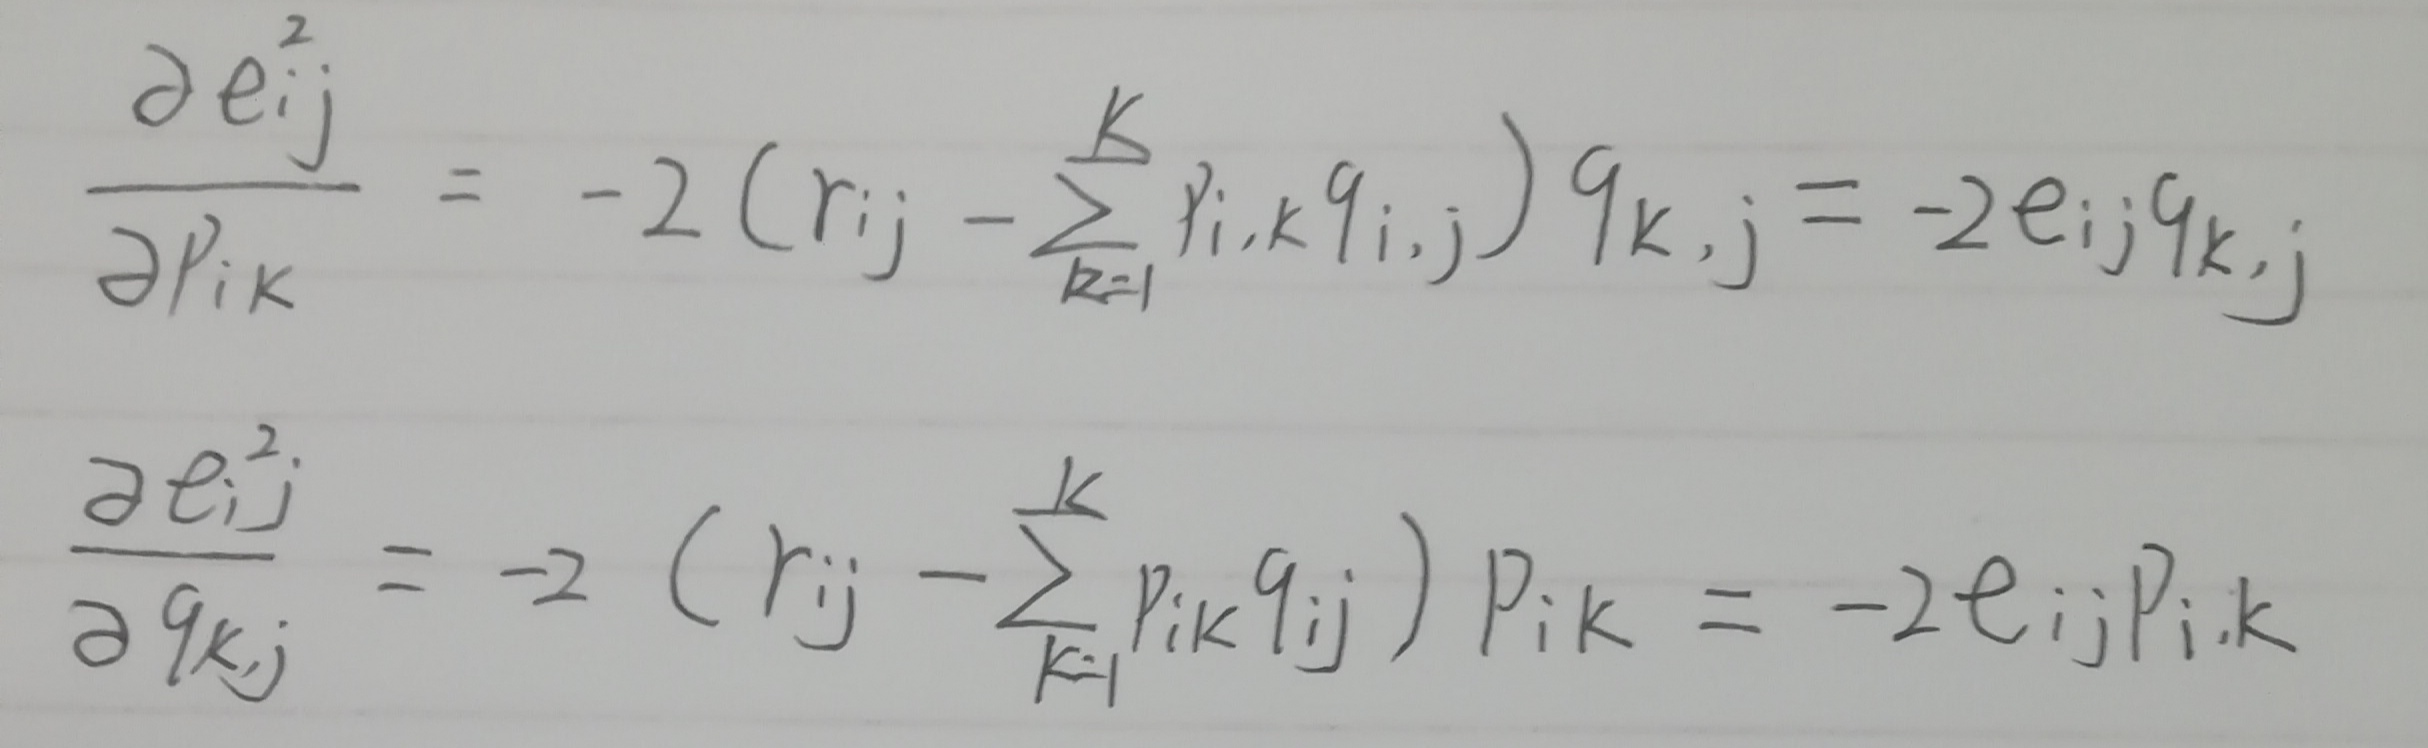 $\frac{\partial e_{ij}^{2}}{\partial p_{ik}} = -2 \left( r_{ij} - \sum_{k=1}^{K} p_{i,k} q_{i,j} \right) q_{k,j} = -2 e_{ij} q_{k,j}$
$\frac{\partial e_{ij}^{2}}{\partial q_{k,j}} = -2 \left( r_{ij} - \sum_{k=1}^{K} p_{ik} q_{ij} \right) p_{ik} = -2 e_{ij} p_{i,k}$